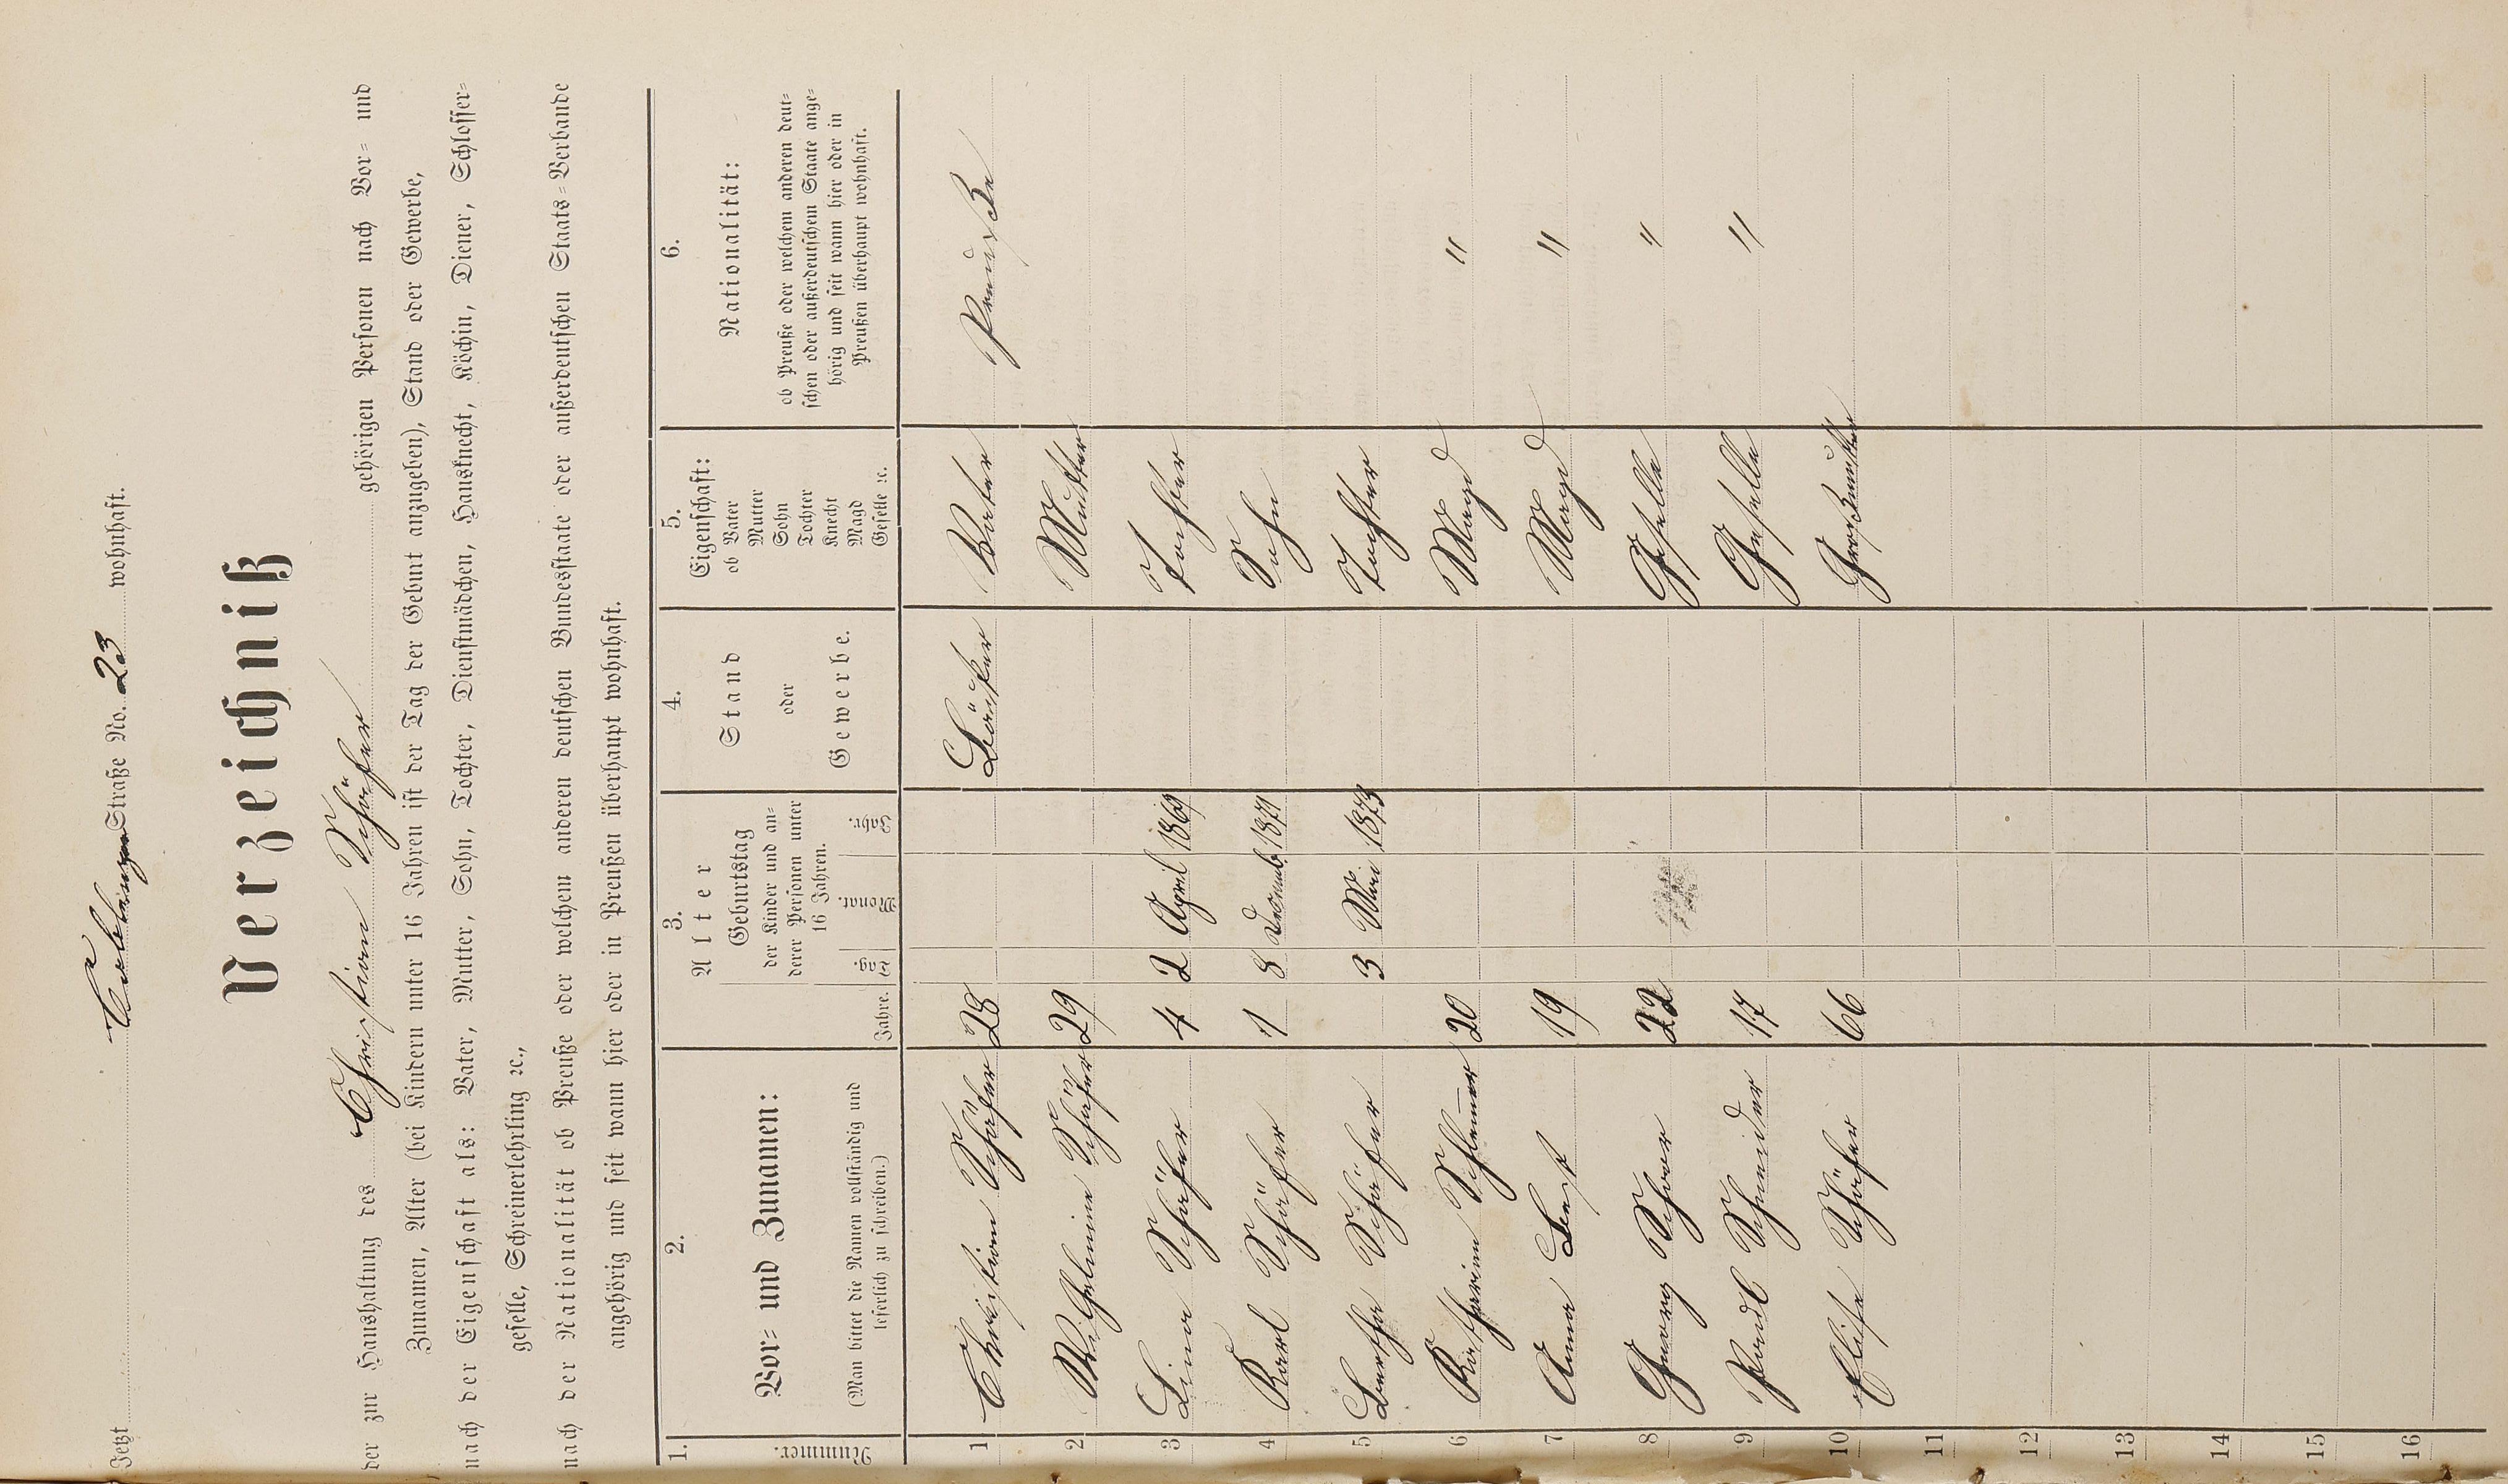 Jetzt Coblenzer Straße No. 23 wohnhaft.
Verzeichniß
der zur Haushaltung des Christian Schäfer gehörigen Personen nach Vor- und
Zunamen, Alter (bei Kindern unter 16 Jahren ist der Tag der Geburt anzugeben), Stand oder Gewerbe,
nach der Eigenschaft als: Vater, Mutter, Sohn, Tochter, Dienstmädchen, Hausknecht, Köchin, Diener, Schlosser-
geselle, Schreinerlehrling ꝛc.,
nach der Nationalität ob Preuße oder welchem anderen deutschen Bundesstaate oder außerdeutschen Staats-Verbande
angehörig und seit wann hier oder in Preußen überhaupt wohnhaft.
1. Nummer.
2. Vor- und Zunamen:
(Man bittet die Namen vollständig und
leserlich zu schreiben.)
3. Alter
Jahre.
Geburtstag
der Kinder und an-
derer Personen unter
16 Jahren.
Tag. Monat. Jahr.
4. Stand
oder
Gewerbe.
5. Eigenschaft:
ob Vater
Mutter
Sohn
Tochter
Knecht
Magd
Geselle ꝛc.
6. Nationalität:
ob Preuße oder welchem anderen deut-
schen oder außerdeutschem Staate ange-
hörig und seit wann hier oder in
Preußen überhaupt wohnhaft.
1 Christian Schäfer 28 Bäcker Vater Preuße
2 Wilhelmine Schäfer 29 Mutter
3 Lina Schäfer 4 2 April 1869 Tochter
4 Karl Schäfer 1 8 Decemb. 1871 Sohn
5 Bertha Schäfer 3 Mai 1873 Tochter
6 Katharina 20 Magd "
7 Anna 19 Magd "
8 Georg 22 Geselle "
9 Schneider 17 Geselle "
10 Elise Schäfer 66 Großmutter
11
12
13
14
15
16